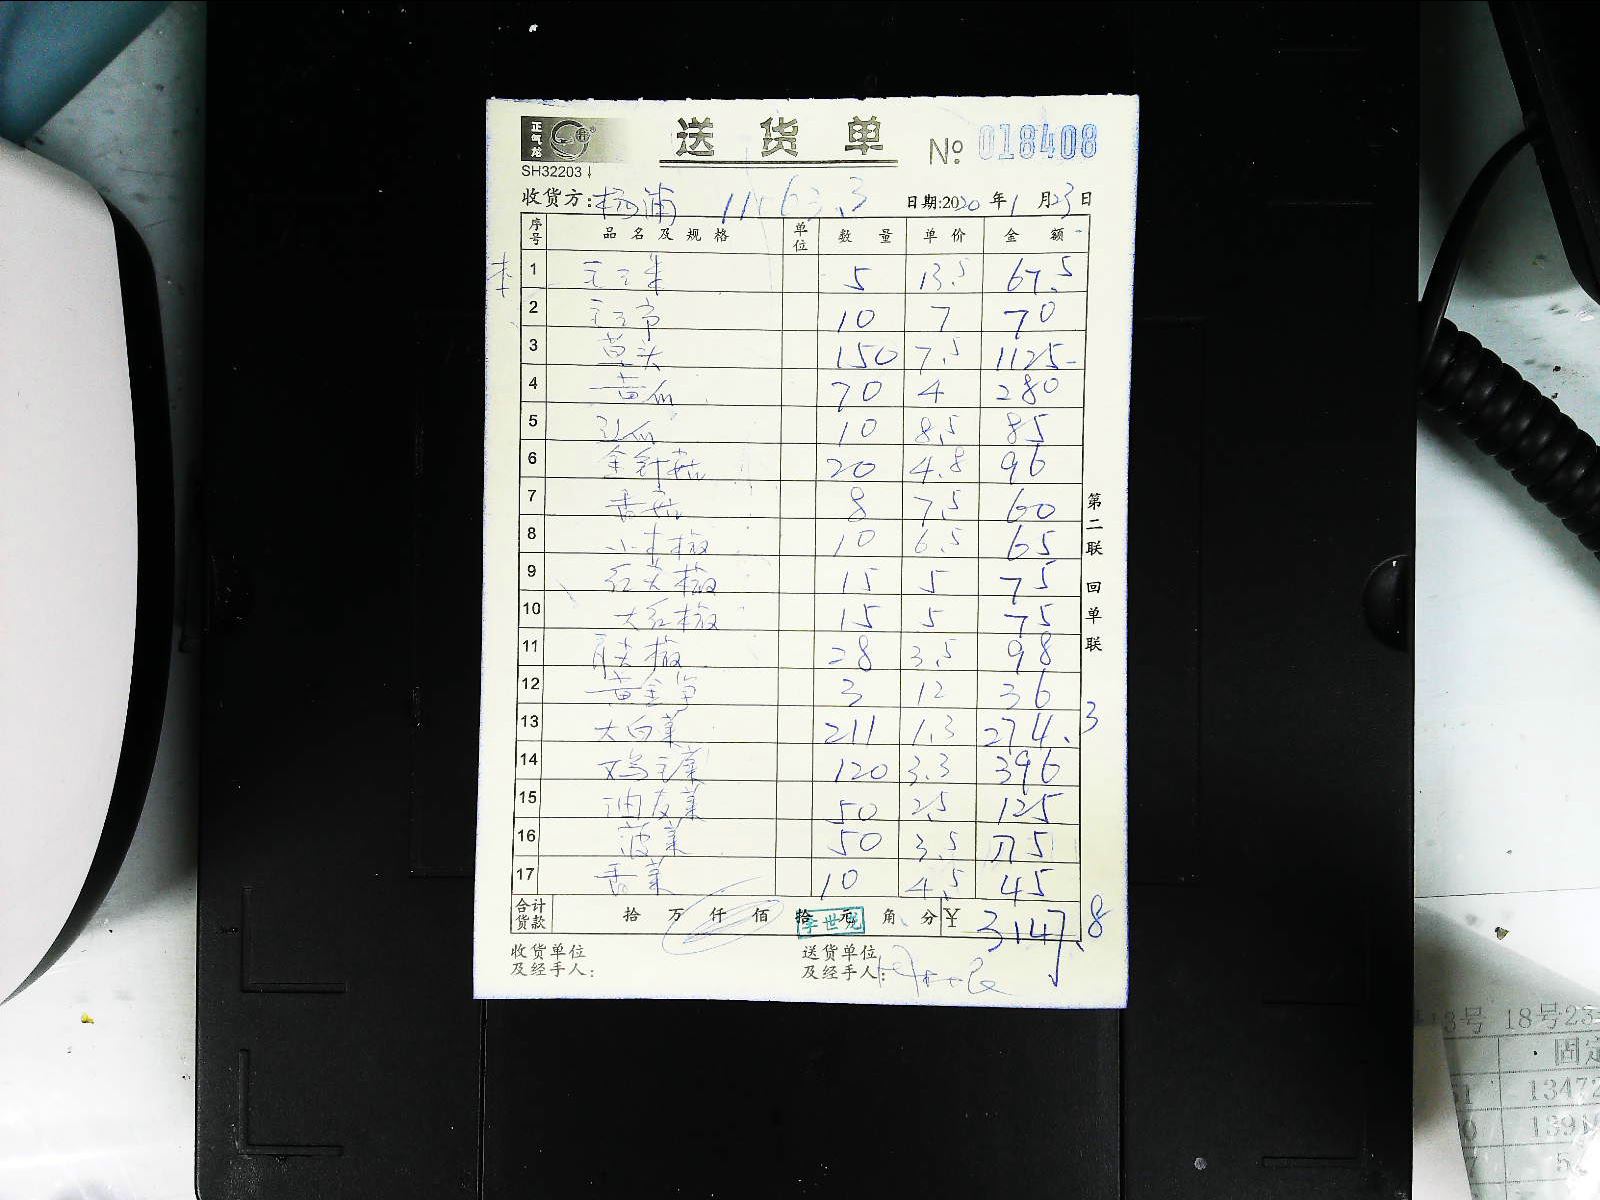 正气龙
送货单 No 018408
SH32203
收货方: 杨浦 11163.3 日期:2020年1月23日
序号 品名及规格 单位 数量 单价 金额
1 5 13.5 67.5
2 10 7 70
3 草头 150 7.5 1125-
4 黄瓜 70 4 280
5 10 8.5 85
6 金针菇 20 4.8 96
7 香菇 8 7.5 60
8 小米椒 10 6.5 65
9 红尖椒 15 5 75
10 大红椒 15 5 75
11 28 3.5 98
12 3 12 36
13 大白菜 211 1.3 274.3
14 鸡毛菜 120 3.3 396
15 油麦菜 50 2.5 125
16 菠菜 50 3.5 175
17 香菜 10 4.5 45
合计货款 拾 万 仟 佰 拾 元 角 分 ¥ 3147.8
李世龙
收货单位及经手人:
送货单位及经手人:
第二联 回单联
18号23
固定
13472